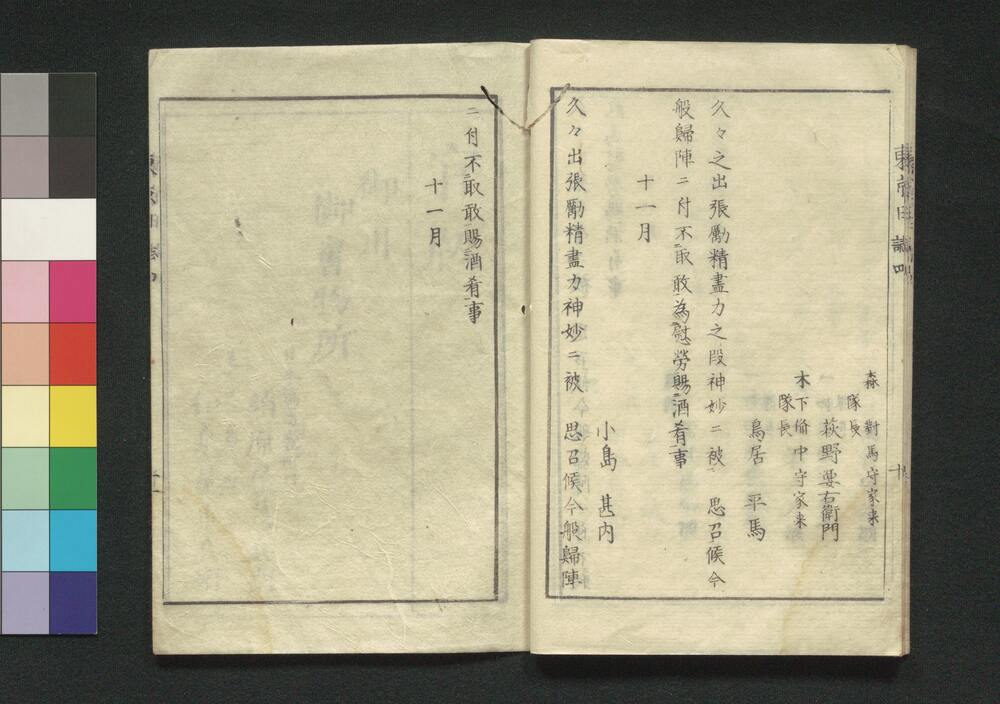 森　對馬守家来
隊長
萩野要右衛門
木下俻中守家来
隊長
鳥居　平馬
久々之出張勵精盡力之段神妙ニ被　思召候今
般歸陣ニ付不取敢為慰勞賜酒肴事
十一月
小島　甚内
久々出張勵精盡力神妙ニ被　思召候今般歸陣
ニ付不取敢賜酒肴事
十一月